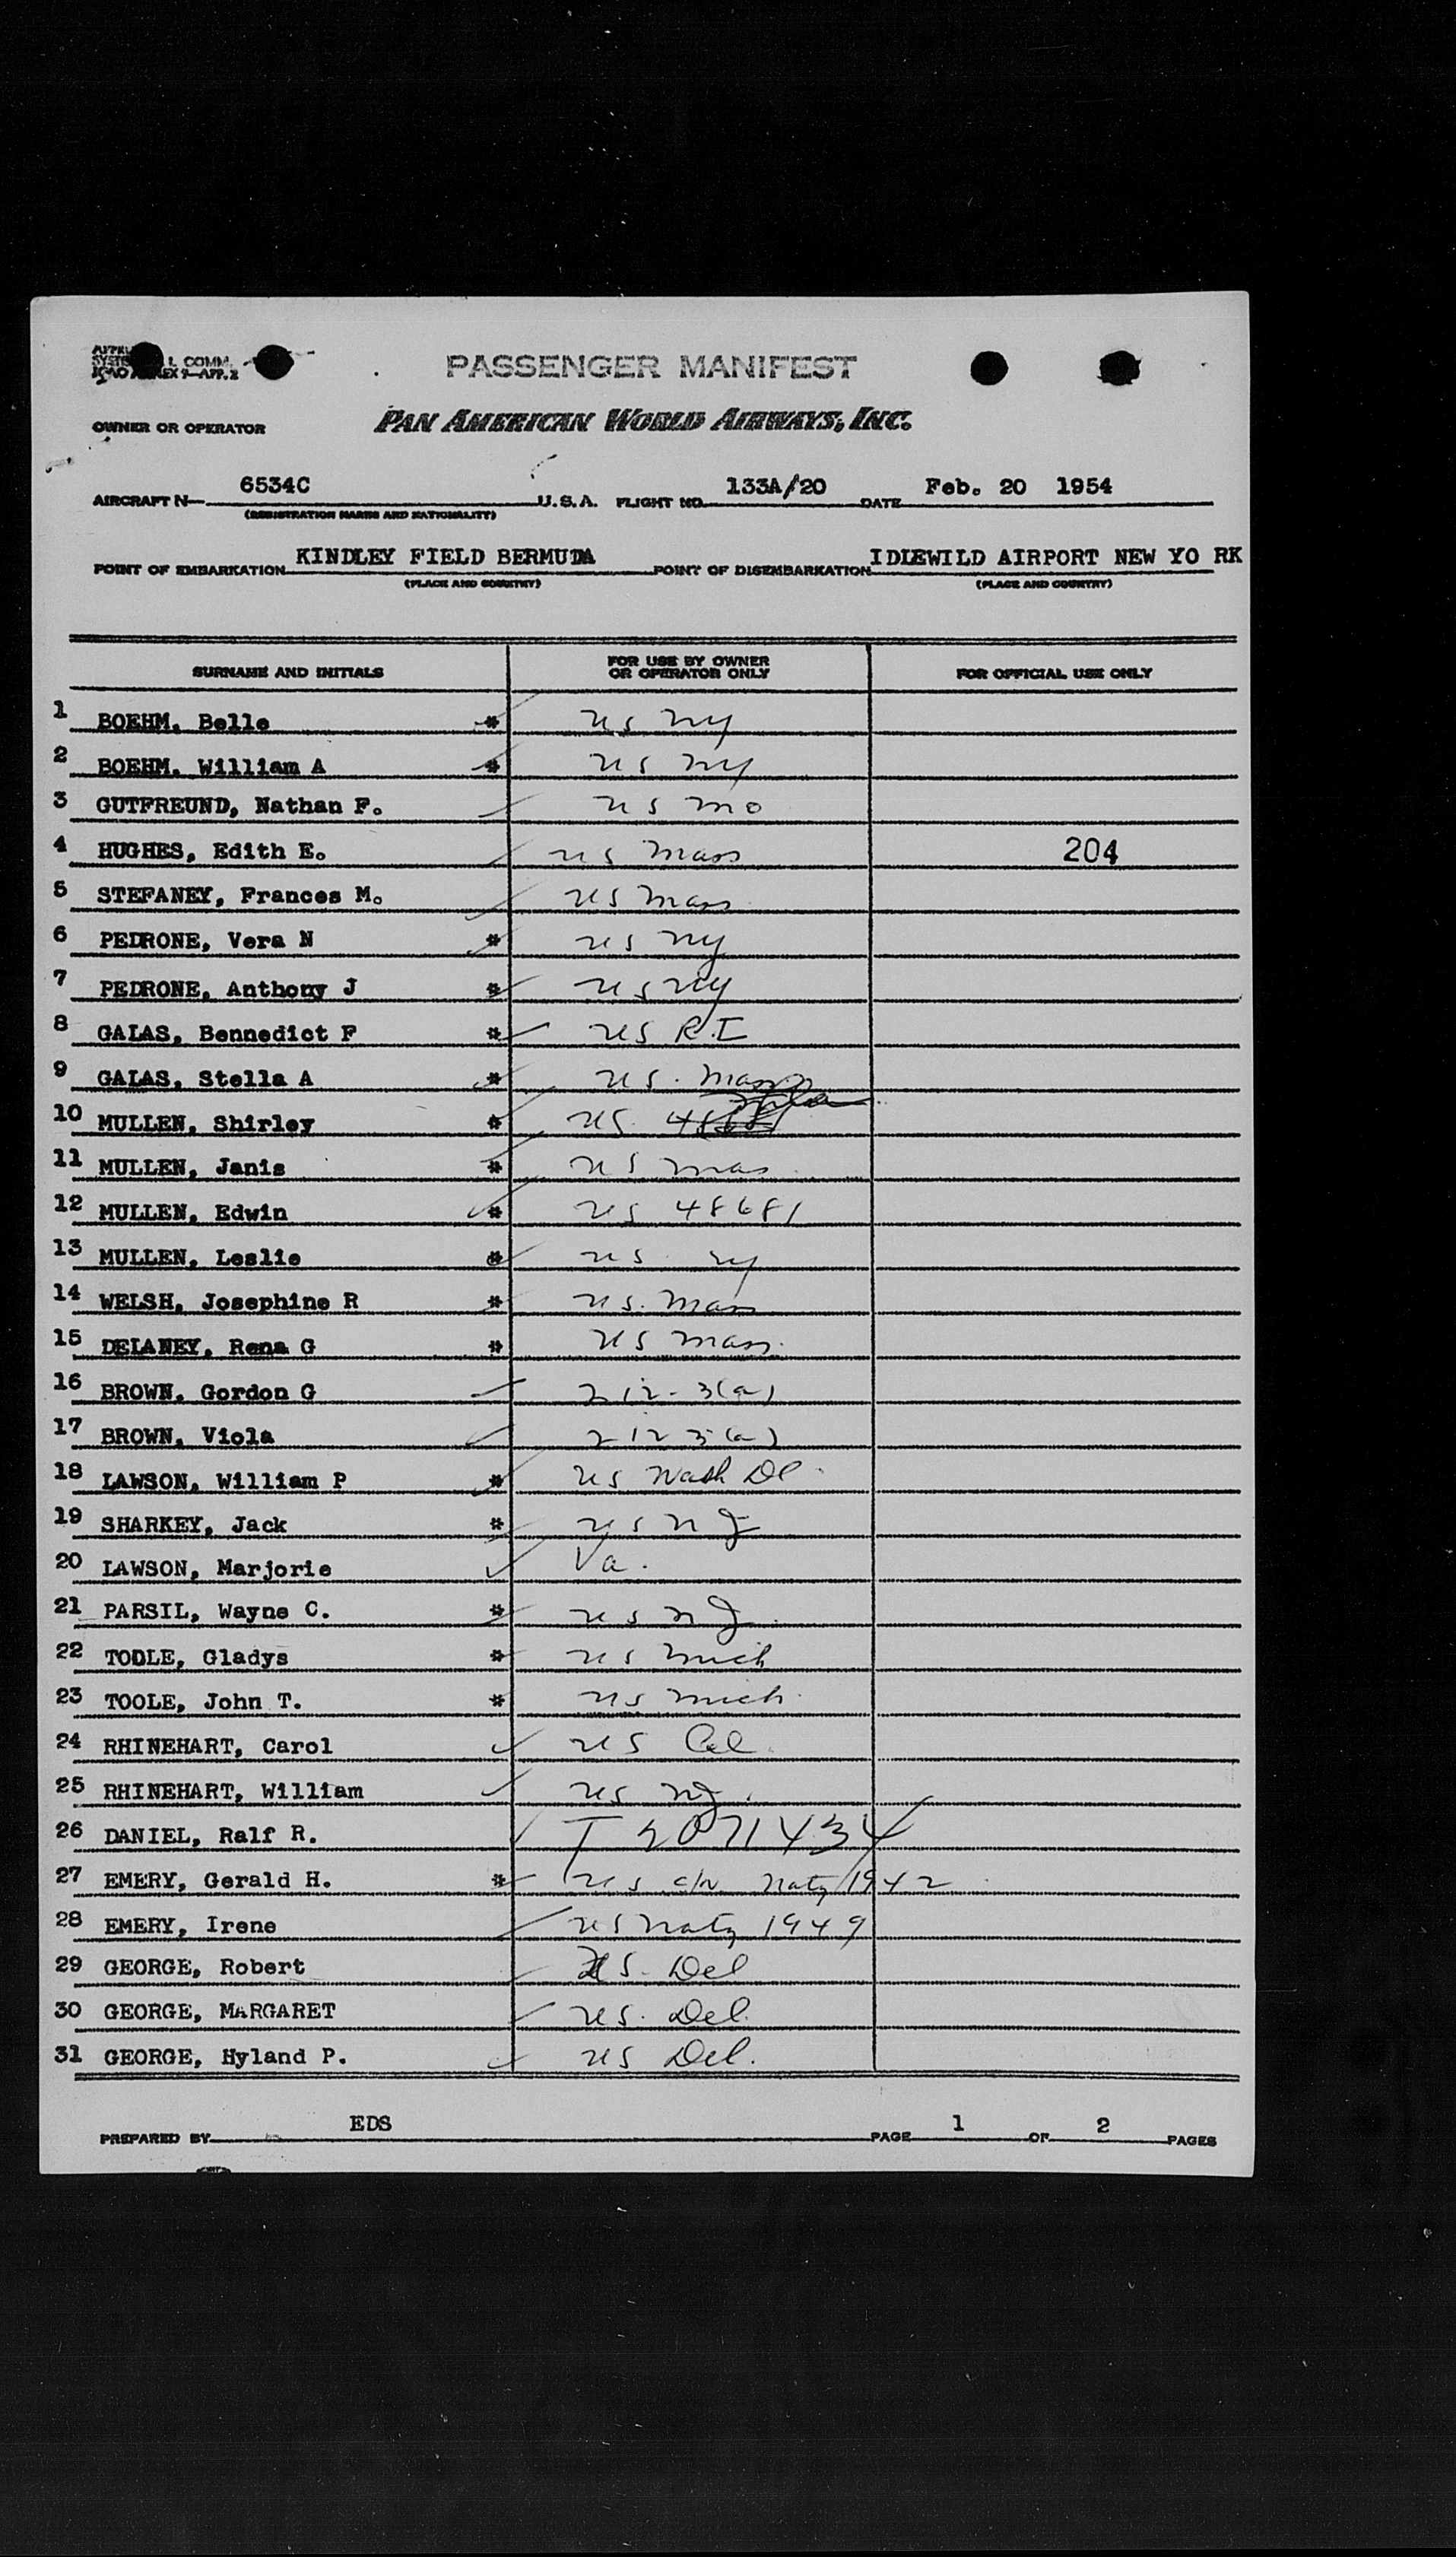 COMM.
EX 9-APP. 2
PASSENGER MANIFEST
OWNER OR OPERATOR PAN AMERICAN WORLD AIRWAYS, INC.
AIRCRAFT N- 6534C U.S.A. FLIGHT NO. 133A/20 DATE Feb. 20 1954
(REGISTRATION MARKS AND NATIONALITY)
POINT OF EMBARKATION KINDLEY FIELD BERMUDA POINT OF DISEMBARKATION IDLEWILD AIRPORT NEW YO RK
(PLACE AND COUNTRY) (PLACE AND COUNTRY)
SURNAME AND INITIALS FOR USE BY OWNER OR OPERATOR ONLY FOR OFFICIAL USE ONLY
1 BOEHM, Belle * US NY
2 BOEHM, William A * US NY
3 GUTFREUND, Nathan F. US MO
4 HUGHES, Edith E. US Mass 204
5 STEFANEY, Frances M. US Mass
6 PEDRONE, Vera N * US NY
7 PEDRONE, Anthony J * US NY
8 GALAS, Bennedict F * US R.I
9 GALAS, Stella A * US. Mass
10 MULLEN, Shirley * US.
11 MULLEN, Janis * US Mas
12 MULLEN, Edwin * US 48681
13 MULLEN, Leslie * US NY
14 WELSH, Josephine R * US. Mass
15 DELANEY, Rena G * US Mass.
16 BROWN, Gordon G 212-3(a)
17 BROWN, Viola 212 3(a)
18 LAWSON, William P * US Wash DC.
19 SHARKEY, Jack * US NJ
20 LAWSON, Marjorie Va.
21 PARSIL, Wayne C. * US NJ.
22 TOOLE, Gladys * US Mich
23 TOOLE, John T. * US Mich.
24 RHINEHART, Carol US Cal.
25 RHINEHART, William US NJ.
26 DANIEL, Ralf R. T 2071434
27 EMERY, Gerald H. * US c/n Natz 1942
28 EMERY, Irene US Natz 1949
29 GEORGE, Robert US. Del
30 GEORGE, MARGARET US. Del.
31 GEORGE, Hyland P. US Del.
PREPARED BY EDS PAGE 1 OF 2 PAGES